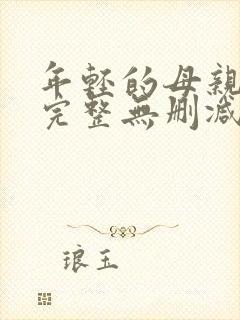 年輕的母親
完整無刪減
琅玉